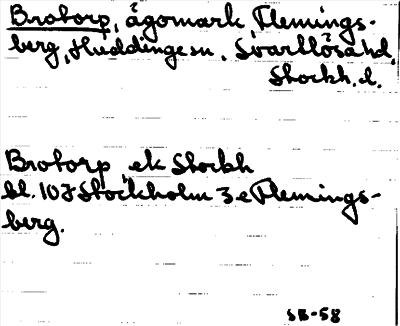 Brotorp, ägomark, Flemings-
berg, Huddinge sn, Svartlösa hd,
Stockh. l.
Brotorp, ek Stockh
bl. 10J Stockholm 3 e Flemings-
berg.
SB-58